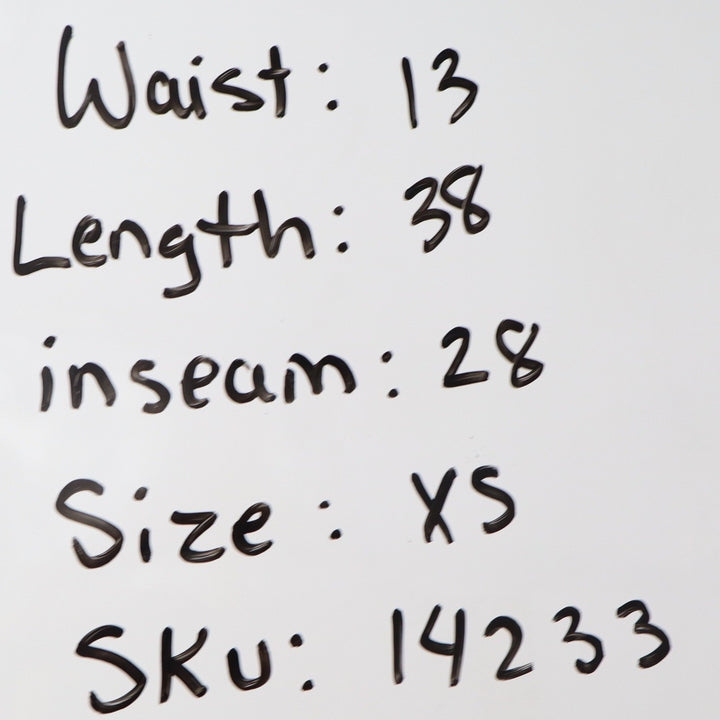 Waist: 13
Length: 38
inseam: 28
Size: XS
SKU: 14233